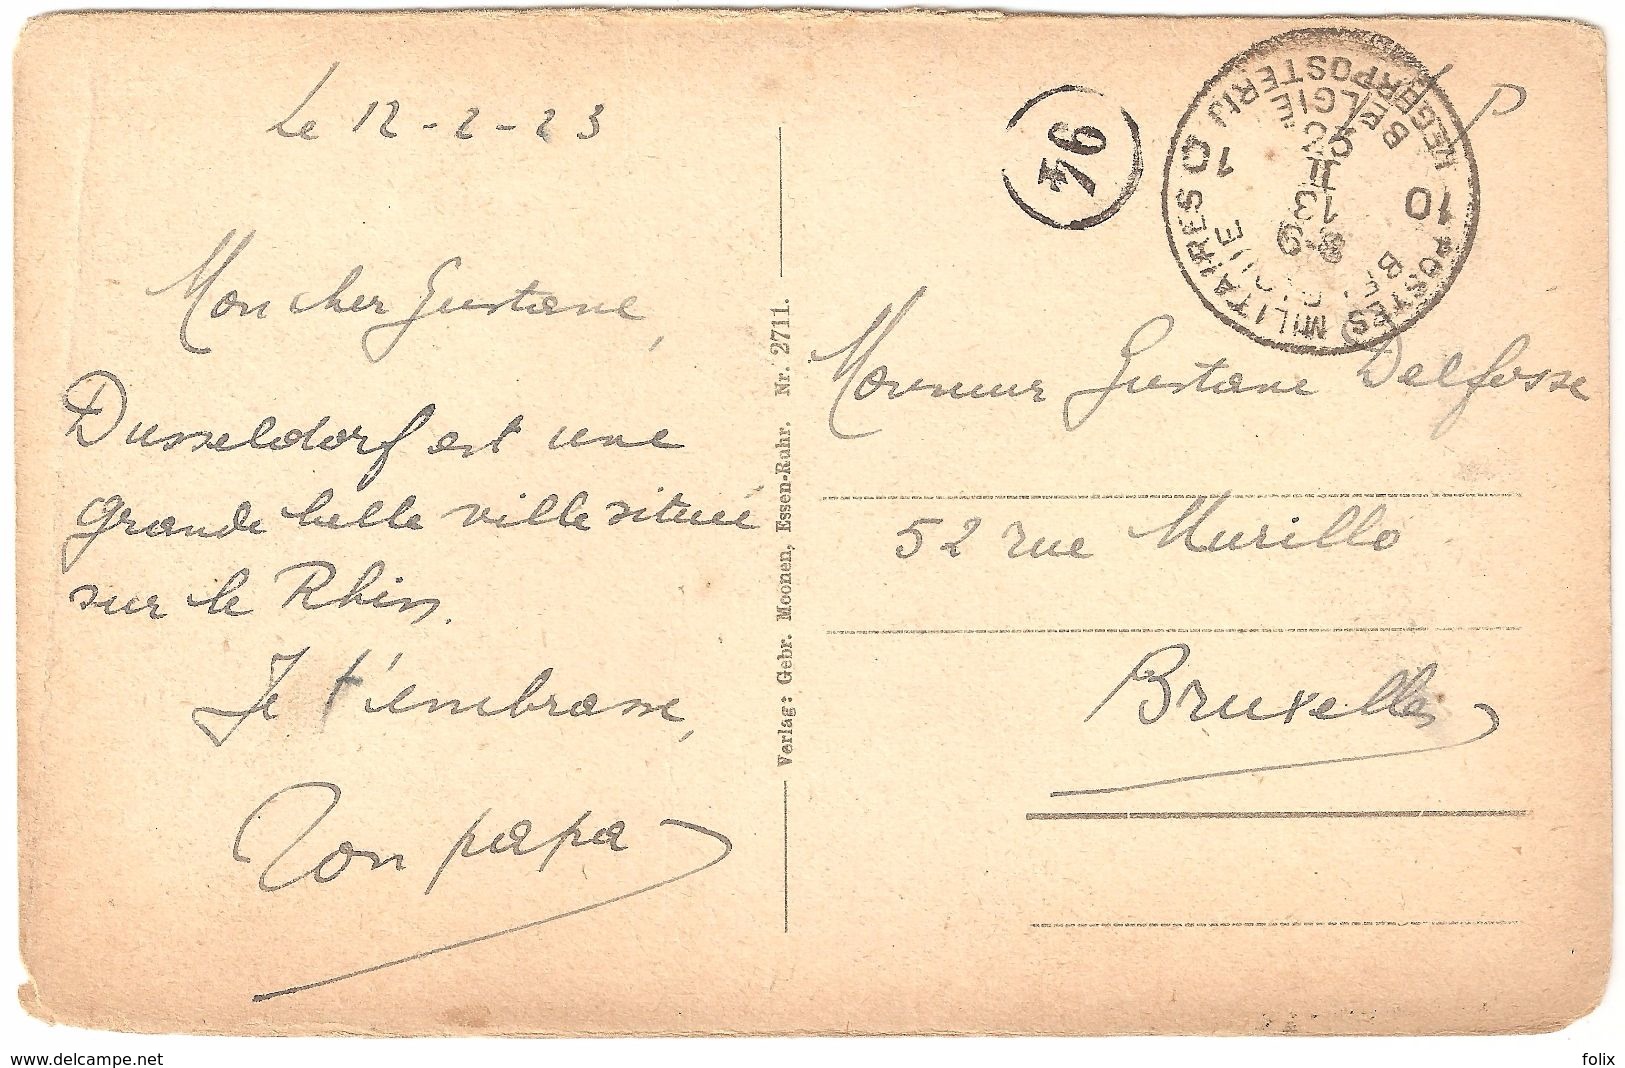 Le 12-2-23
Mon cher Gustave,
Dusseldorf est une
grande belle ville située
sur le Rhin.
Je t'embrasse,
Ton papa
Verlag: Gebr. Moonen, Essen-Ruhr. Nr. 2711.
94
POSTES MILITAIRES 10
BELGIQUE
BELGIE
LEGERPOSTERIJ 10
13 II
P
Monsieur Gustave Delfosse
52 rue Murillo
Bruxelles
www.delcampe.net
folix